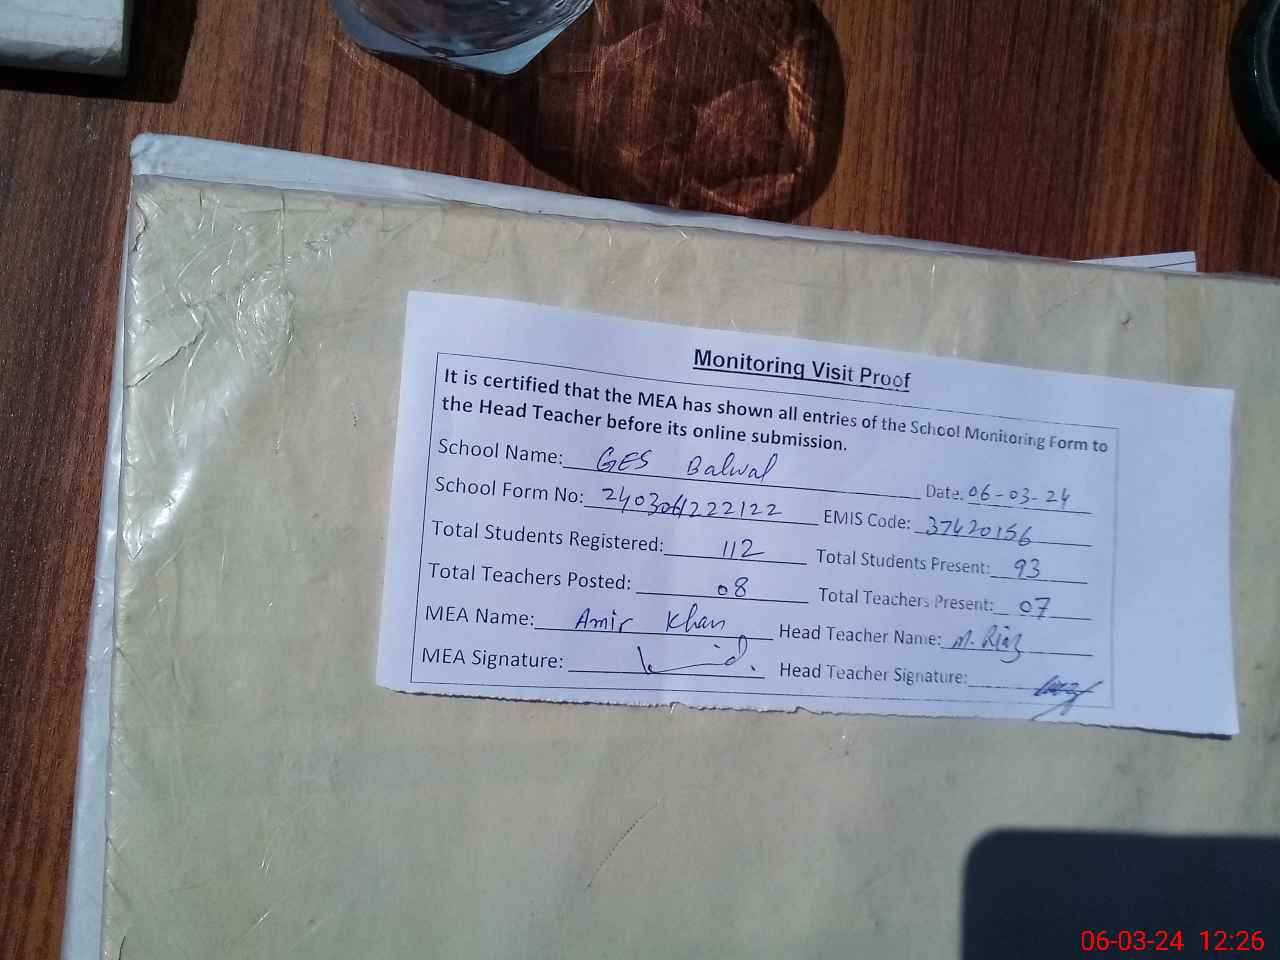 Monitoring Visit Proof
It is certified that the MEA has shown all entries of the School Monitoring Form to
the Head Teacher before its online submission.
School Name: GES Balwal Date: 06-03-24
School Form No: 2403061222122 EMIS Code: 37420156
Total Students Registered: 112 Total Students Present: 93
Total Teachers Posted: 08 Total Teachers Present: 07
MEA Name: Amir Khan Head Teacher Name: M. Riaz
MEA Signature: Head Teacher Signature:
06-03-24 12:26